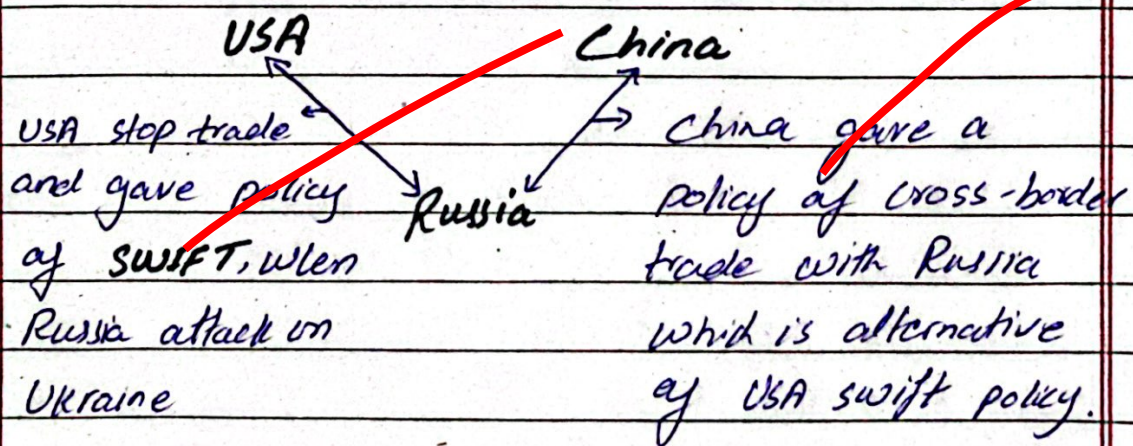 USA China
USA stop trade
and gave policy
of SWIFT, when
Russia attack on
Ukraine
Russia
China gave a
policy of cross-border
trade with Russia
which is alternative
of USA swift policy.